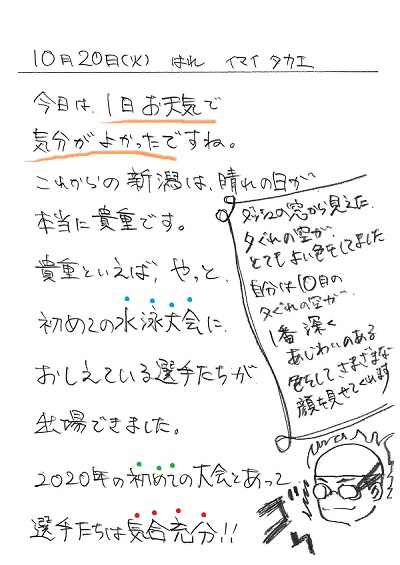 10月20日(火) はれ イマイ タカエ
今日は、1日お天気で
気分がよかったですね。
これからの新潟は、晴れの日が
本当に貴重です。
貴重といえば、やっと、
初めての水泳大会に
おしえている選手たちが
出場できました。
2020年の初めての大会とあって
選手たちは気合充分!!
の窓から見えた
夕ぐれの空が、
とてもよい色をしてました
自分は10月の
夕ぐれの空が
1番深く
あじわいのある
色をしてさまざまな
顔を見せてくれます
ゴゥ